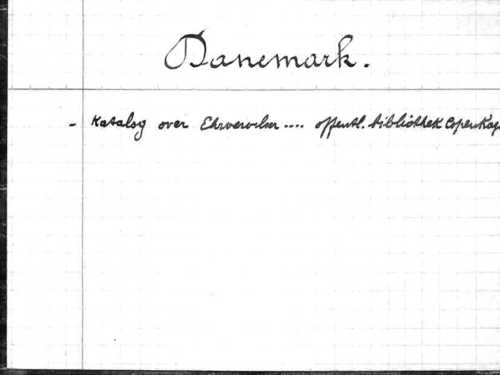 Danemark.
- Katalog over Ehrvervelser .... offentl. bibliothek Copenhag